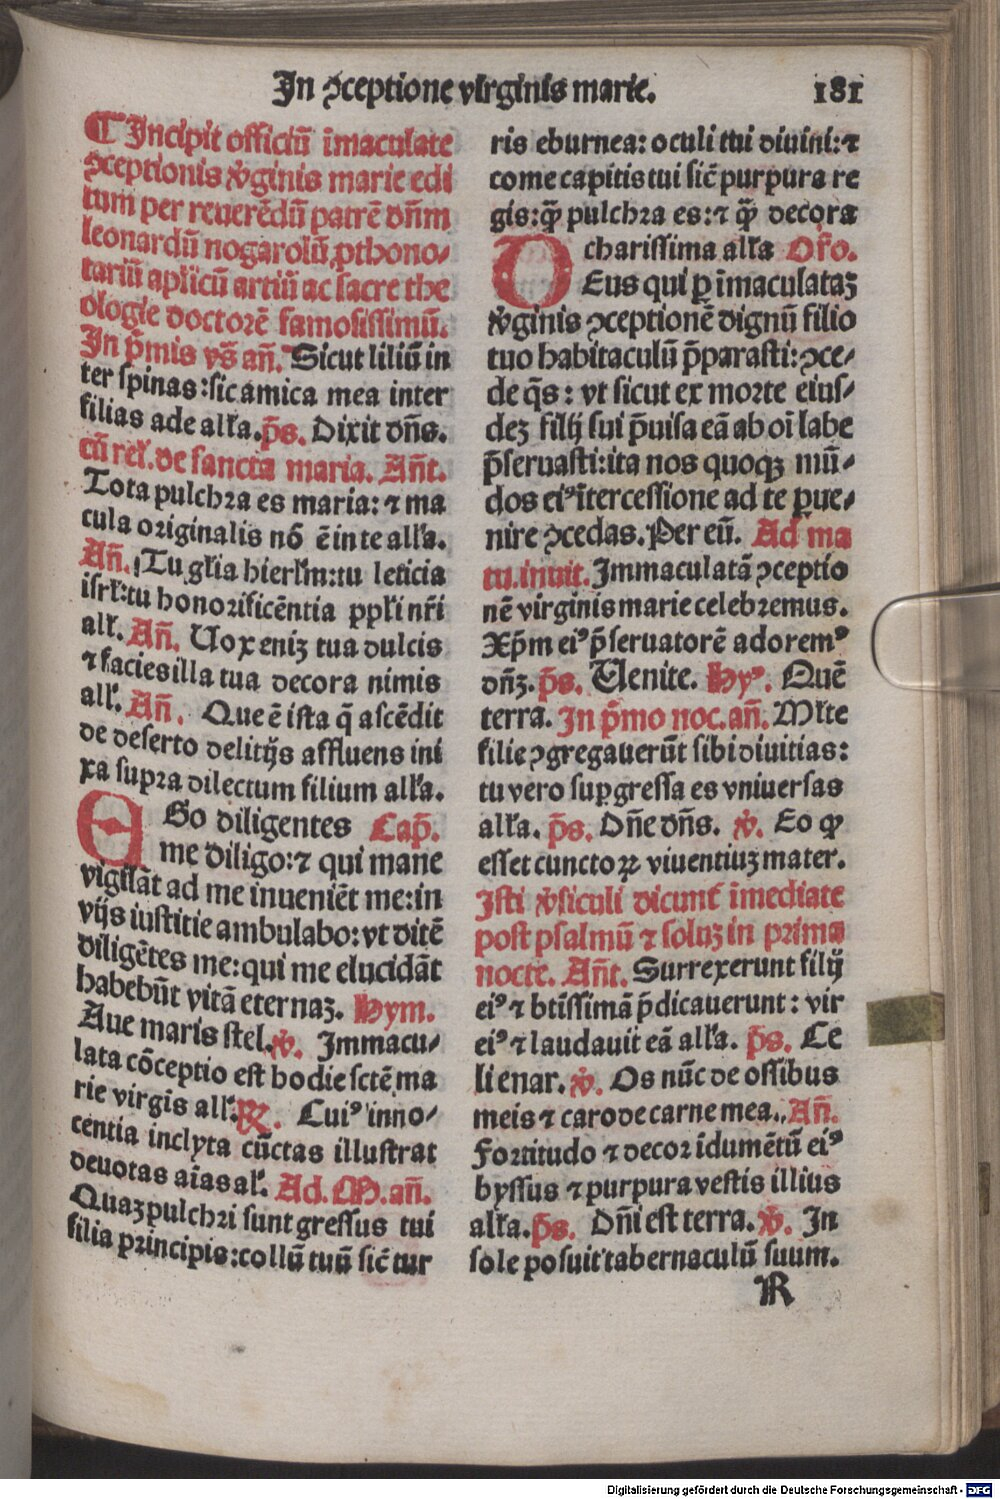 In ꝯceptione virginis marie. 181
¶ Incipit officiū īmaculate
ꝯceptionis v̓ginis marie edi
tum per reuerēdū patrē dn̄m
leonardū nogarolū ꝓthono⸗
tariū apl̓icū artiū ac sacre the
ologie doctorē famosissimū.
In p̄mis vs̄ an̄. Sicut liliū in
ter spinas: sic amica mea inter
filias ade all̓a. p̄s. Dixit dn̄s.
cū rel̓. de sancta maria. An̄t.
Tota pulchra es maria: ⁊ ma
cula originalis nō ē in te all̓a.
An̄. Tu gl̓ia hierl̓m: tu leticia
isrl̓: tu honorificētia ppl̓i nr̄i
all̓. An̄. Uox eniꝫ tua dulcis
⁊ facies illa tua decora nimis
all̓. An̄. Que ē ista q̄ ascēdit
de deserto delitijs affluens ini
xa supra dilectum filium all̓a.
EGo diligentes Cap̄.
me diligo: ⁊ qui mane
vigil̓āt ad me inueniēt me: in
vijs iustitie ambulabo: vt ditē
diligētes me: qui me elucidāt
habebūt vitā eternaꝫ. Hym.
Aue maris stel. v̓. Immacu⸗
lata cōceptio est hodie sctē ma
rie virgis all̓. ℞. Cuiꝰ inno⸗
centia inclyta cūctas illustrat
deuotas aīas al̓. Ad. M. an̄.
Quaꝫ pulchri sunt gressus tui
filia principis: collū tuū sic̄ tur
ris eburnea: oculi tui diuini: ⁊
come capitis tui sic̄ purpura re
gis: ꝙ̄ pulchra es: ⁊ ꝙ̄ decora
charissima all̓a Or̄o.
DEus qui ꝑ īmaculataꝫ
v̓ginis ꝯceptionē dignū filio
tuo habitaculū p̄parasti: ꝯce⸗
de q̄s: vt sicut ex morte eius⸗
deꝫ filij sui p̄uisa eā ab oī labe
p̄seruasti: ita nos quoqꝫ mū⸗
dos eiꝰ ītercessione ad te ꝑue⸗
nire ꝯcedas. Per eū. Ad ma
tu. inuit. Immaculatā ꝯceptio
nē virginis marie celebremus.
Xp̄m eiꝰ p̄seruatorē adoremꝰ
dn̄ꝫ. p̄s. Uenite. Hyꝰ. Quē
terra. In p̄mo noc. an̄. Ml̓te
filie ꝯgregauerūt sibi diuitias:
tu vero suꝑgressa es vniuersas
all̓a. p̄s. Dn̄e dn̄s. v̓. Eo ꝙ
esset cunctoꝝ viuentiuꝫ mater.
Isti v̓siculi dicunt̄ īmediate
post psalmū ⁊ soluꝫ in prima
nocte. An̄t. Surrexerunt filij
eiꝰ ⁊ btīssimā p̄dicauerunt: vir
eiꝰ ⁊ laudauit eā all̓a. p̄s. Ce
li enar. v̓. Os nūc de ossibus
meis ⁊ caro de carne mea. An̄.
Fortitudo ⁊ decor īdumētū eiꝰ
byssus ⁊ purpura vestis illius
all̓a. p̄s. Dn̄i est terra. v̓. In
sole posuit tabernaculū suum.
R
Digitalisierung gefördert durch die Deutsche Forschungsgemeinschaft - DFG